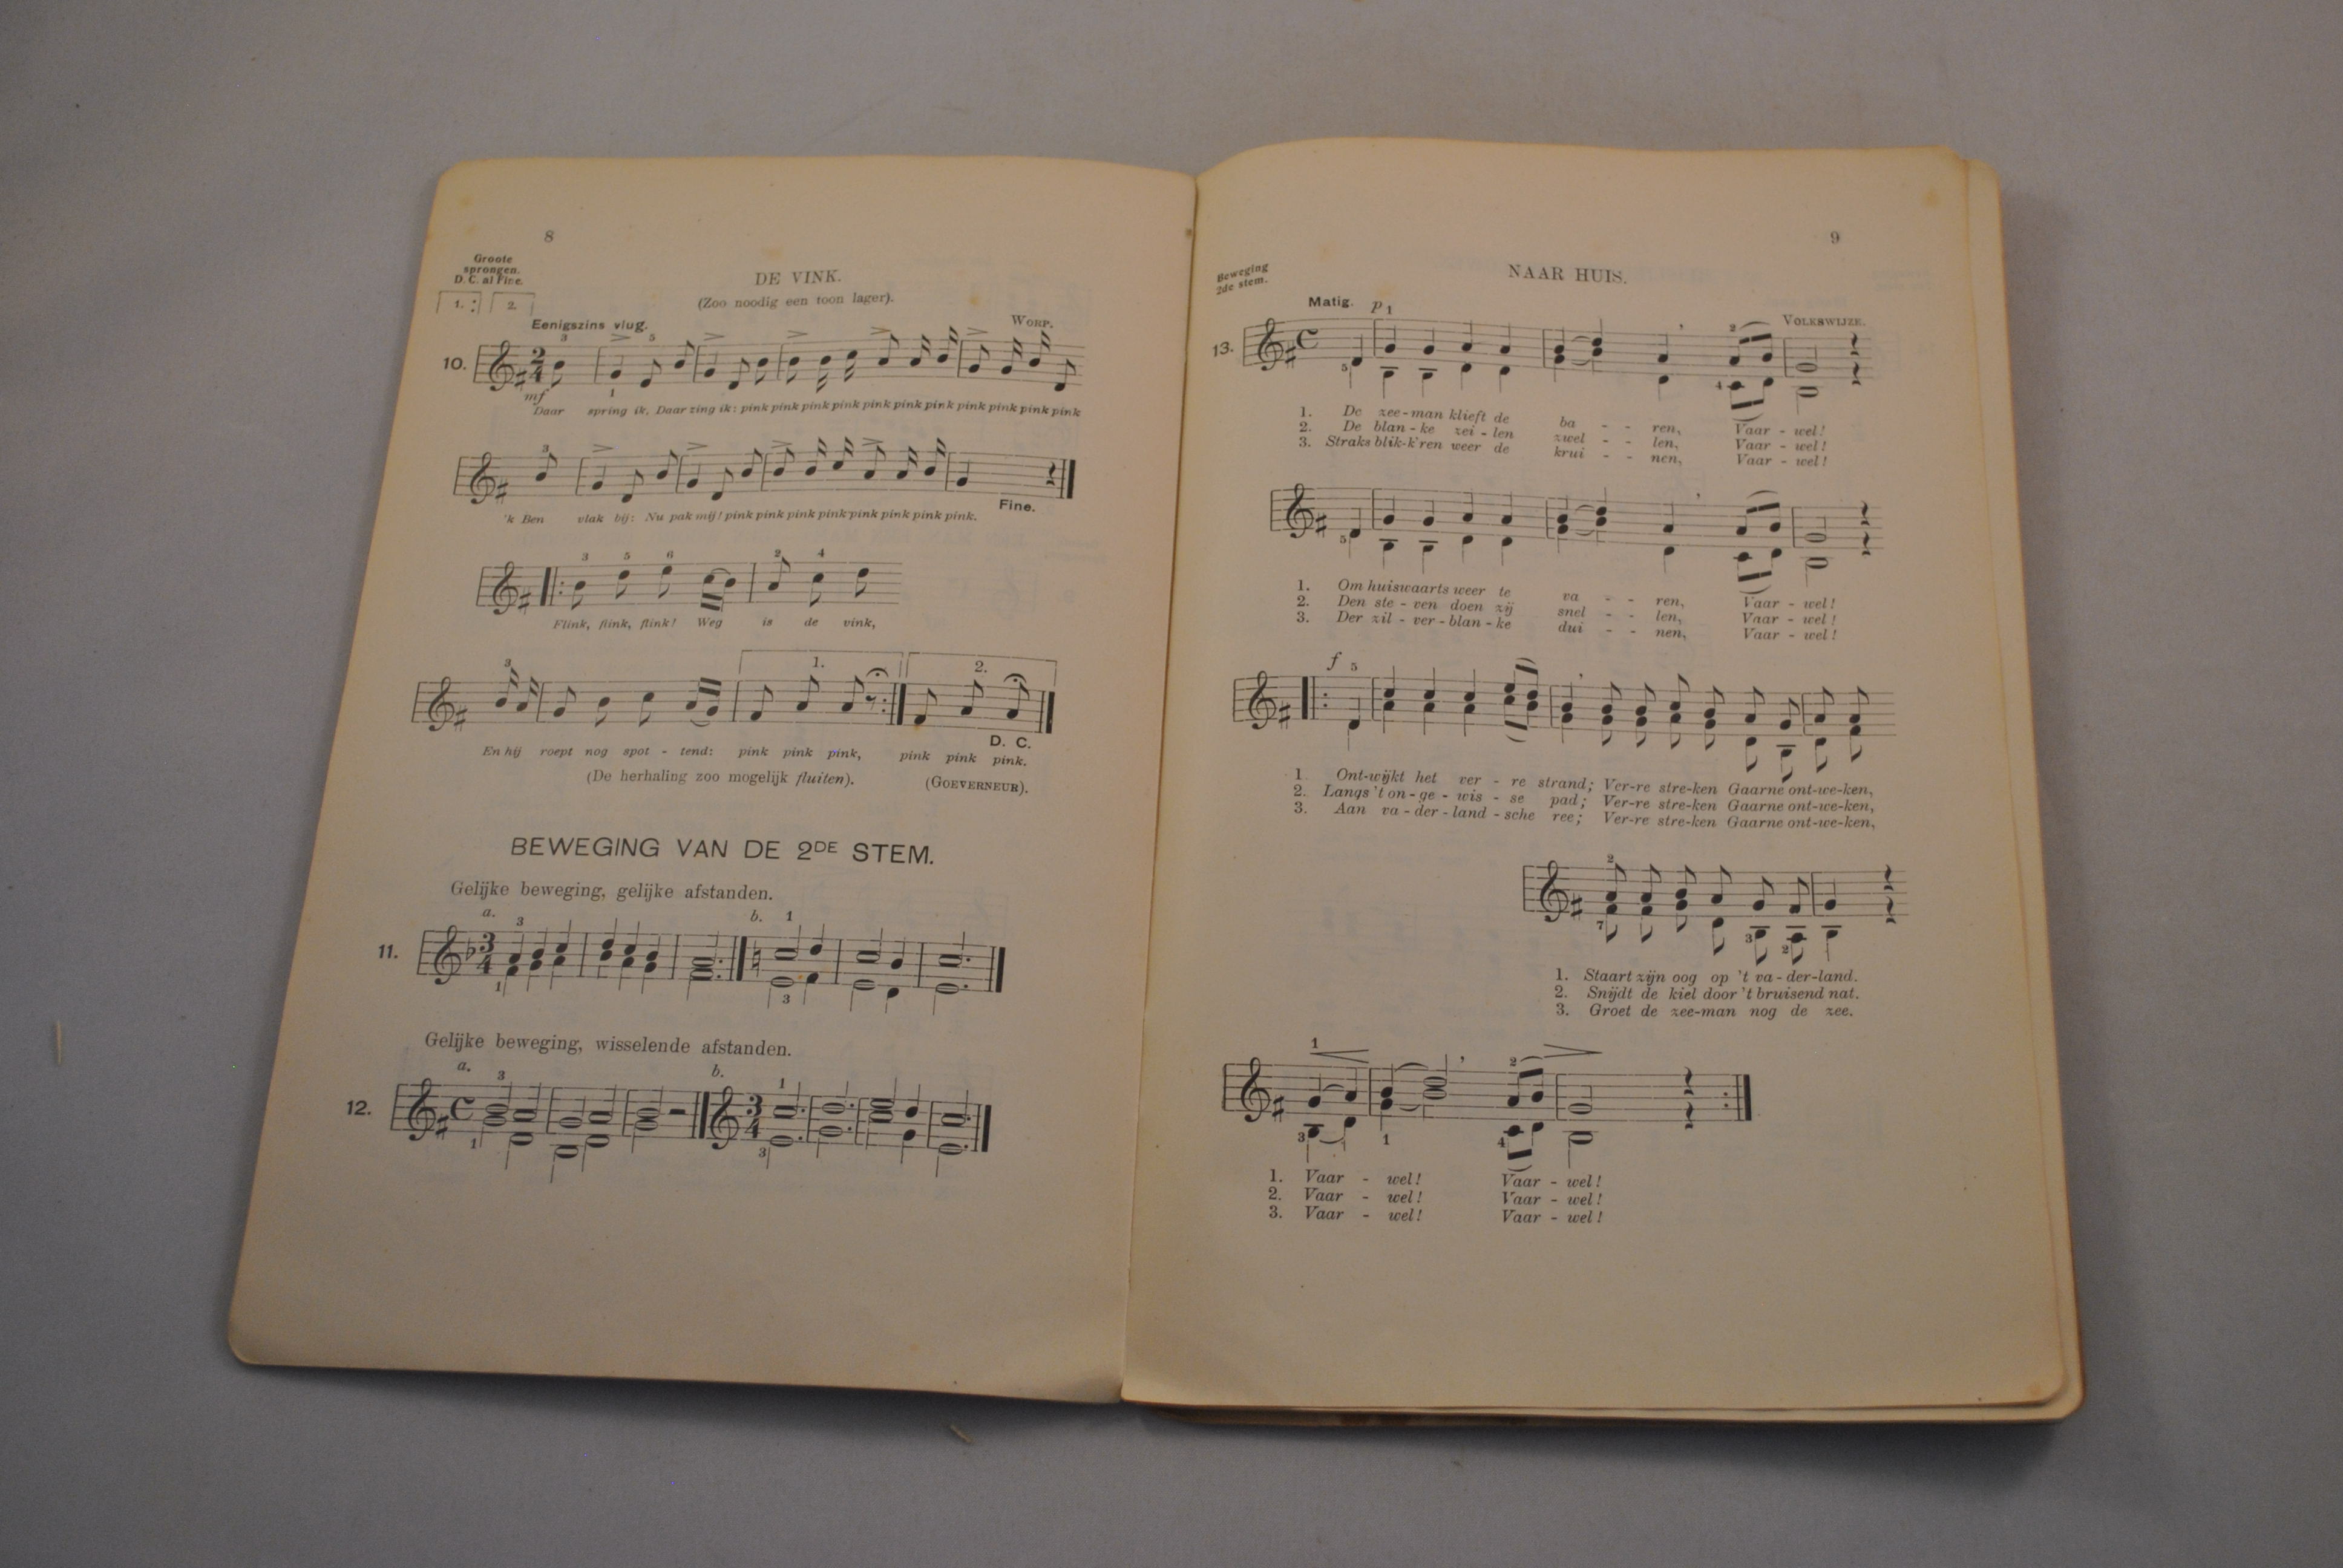 8
Groote
sprongen.
D. C. al Fine.
1. : 2.
DE VINK.
(Zoo noodig een toon lager).
Eenigszins vlug.
WORP.
3 5
10.
2
4
mf 1
Daar spring ik, Daar zing ik: pink pink pink pink pink pink pink pink pink pink pink
3
'k Ben vlak bij: Nu pak mij! pink pink pink pink pink pink pink pink.
Fine.
3 5 6 2 4
Flink, flink, flink! Weg is de vink,
3 1. 2.
En hij roept nog spot - tend: pink pink pink, pink pink pink.
D. C.
(De herhaling zoo mogelijk fluiten).
(GOEVERNEUR).
BEWEGING VAN DE 2DE STEM.
Gelijke beweging, gelijke afstanden.
a. 3 b. 1
11.
3
4
1 3
Gelijke beweging, wisselende afstanden.
a. 3 b. 1
12.
3
4
1 3
9
Beweging
2de stem.
NAAR HUIS.
Matig. p 1
VOLKSWIJZE.
2
13.
5 4
1. De zee-man klieft de ba - - ren, Vaar - wel!
2. De blan-ke zei-len zwel - - len, Vaar - wel!
3. Straks blik-k'ren weer de krui - - nen, Vaar - wel!
5
1. Om huiswaarts weer te va - - ren, Vaar - wel!
2. Den ste-ven doen zij snel - - len, Vaar - wel!
3. Der zil-ver-blan-ke dui - - nen, Vaar - wel!
f 5
1 Ont-wijkt het ver - re strand; Ver-re stre-ken Gaarne ont-we-ken,
2. Langs 't on-ge-wis - se pad; Ver-re stre-ken Gaarne ont-we-ken,
3. Aan va-der-land-sche ree; Ver-re stre-ken Gaarne ont-we-ken,
2
7 3 2
1. Staart zijn oog op 't va-der-land.
2. Snijdt de kiel door 't bruisend nat.
3. Groet de zee-man nog de zee.
1 2
3 1 4
1. Vaar - wel! Vaar - wel!
2. Vaar - wel! Vaar - wel!
3. Vaar - wel! Vaar - wel!